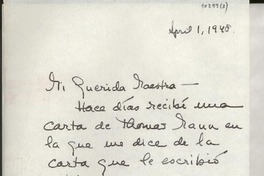 April 1, 1948
Mi Querida Maestra —
Hace días recibí una
carta de Thomas Mann en
la que me dice de la
carta que le escribió